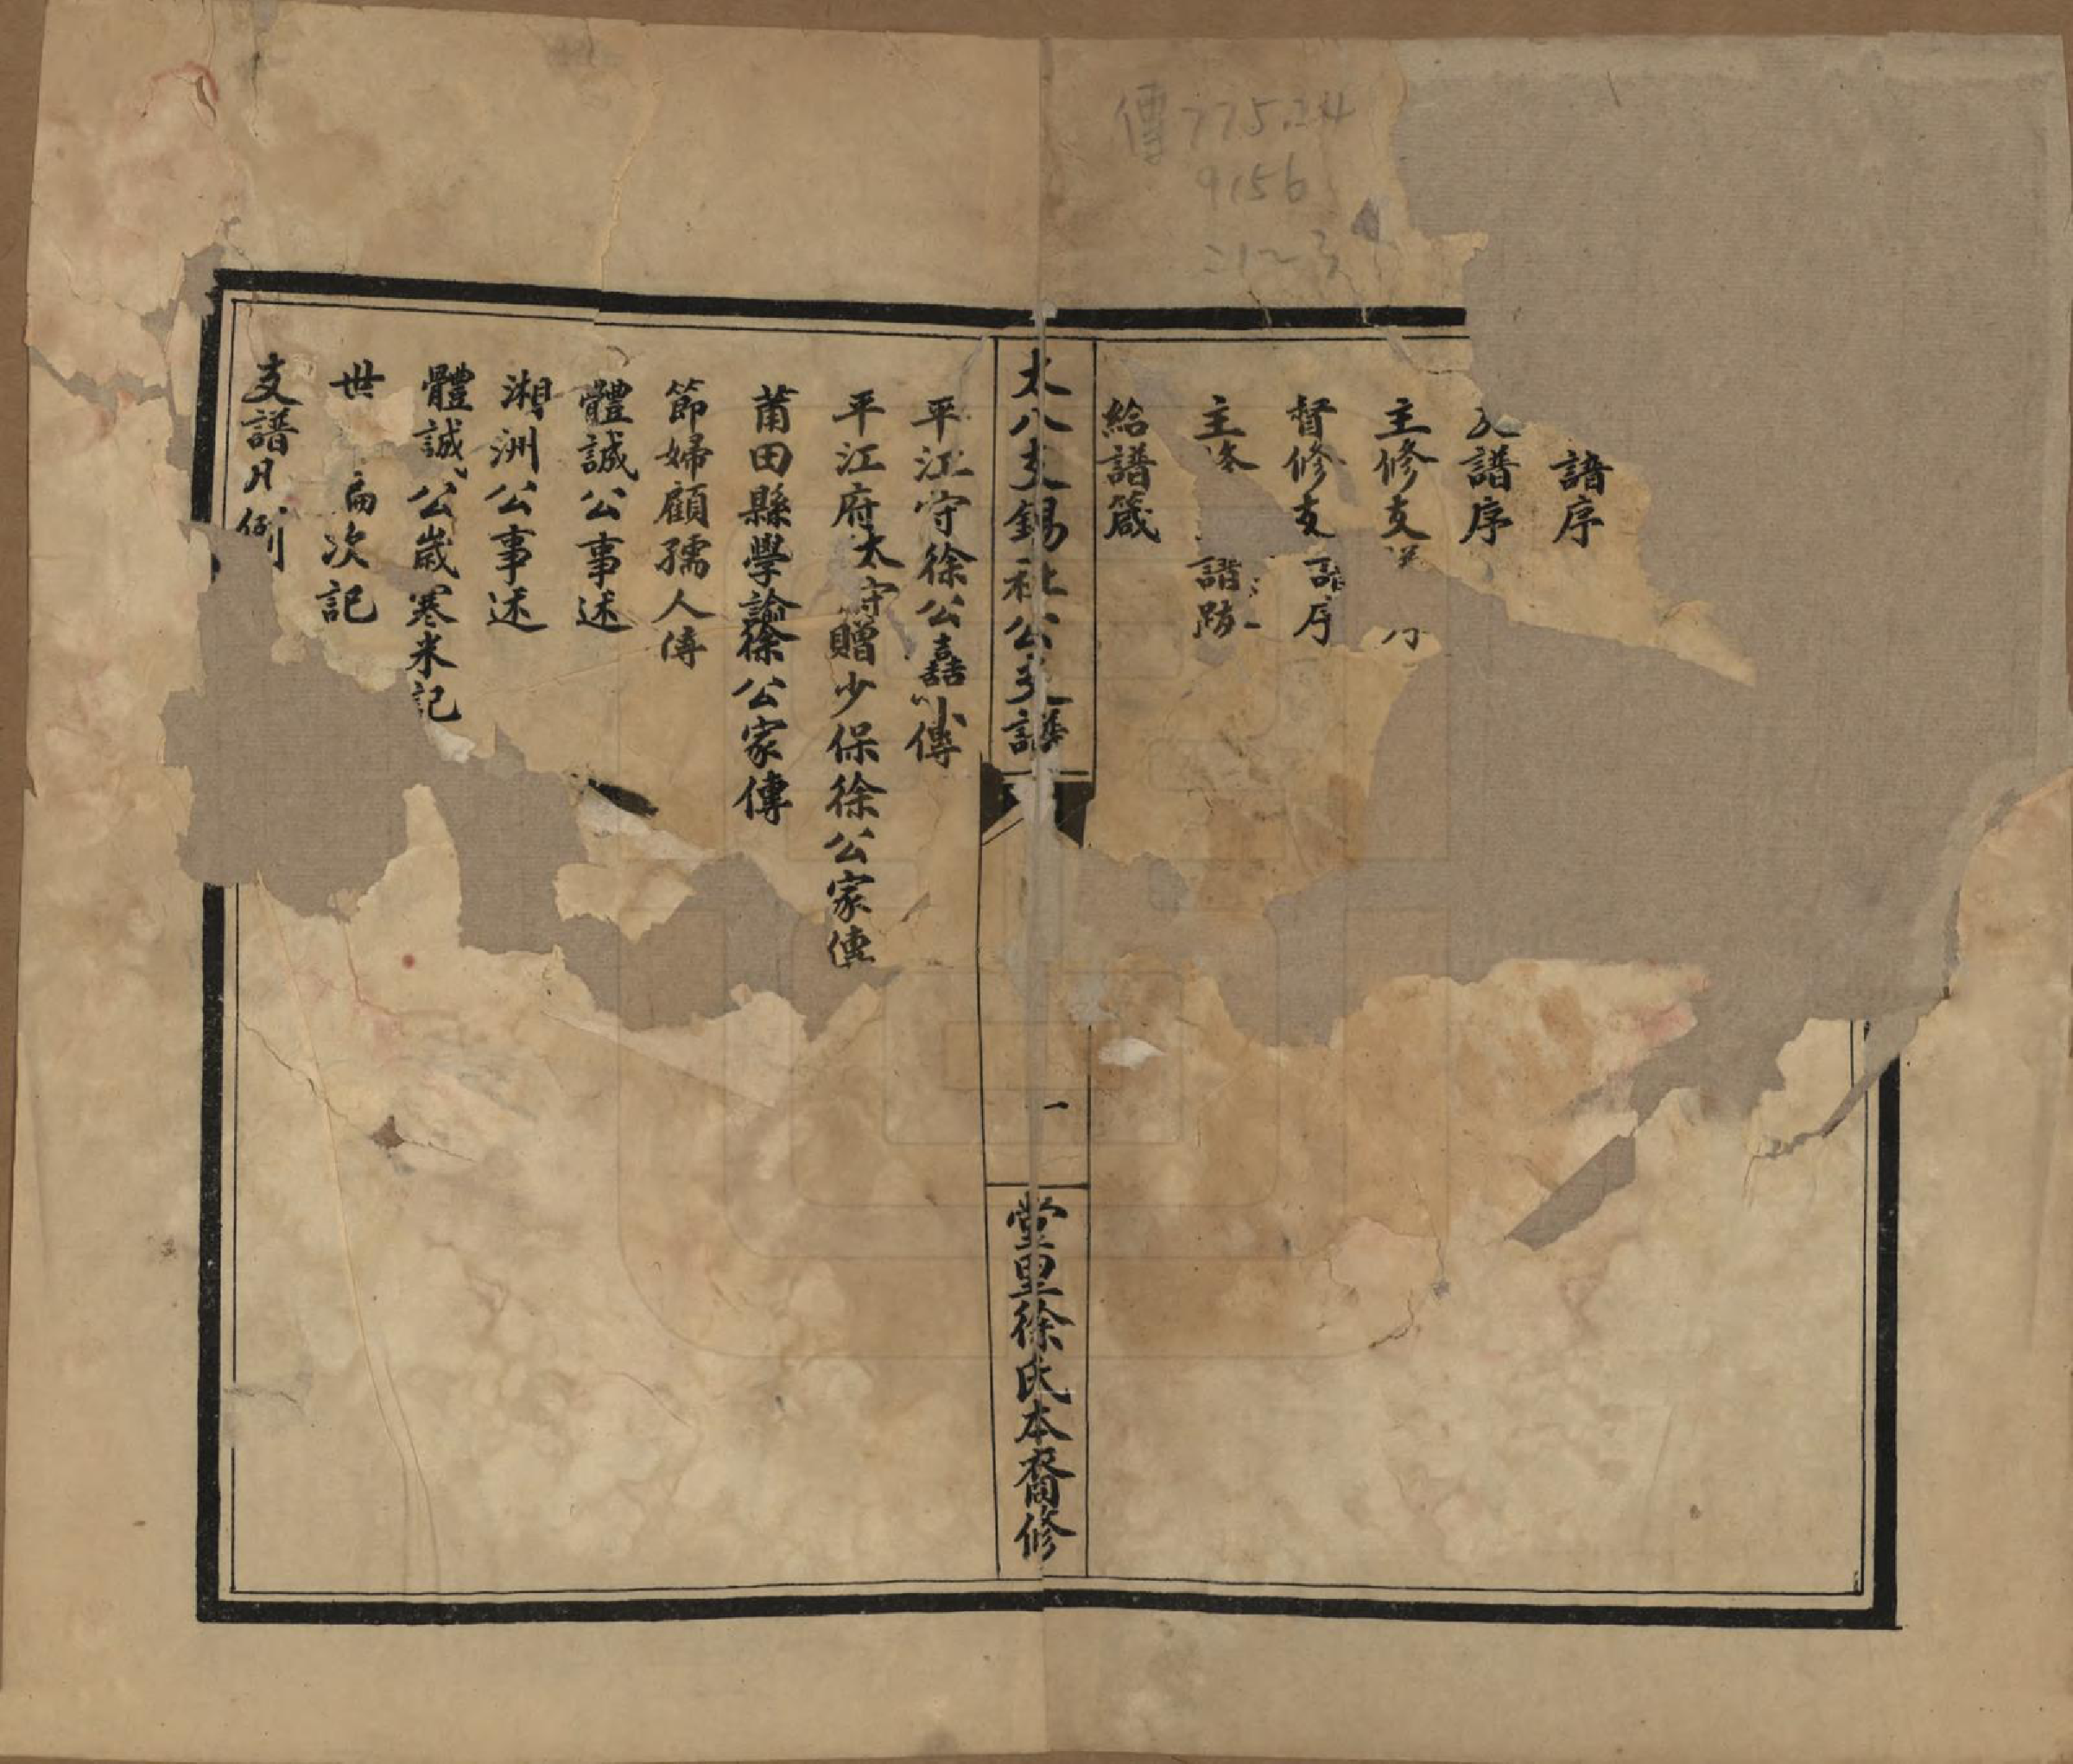 傳 775.24
9156
21~3
譜序
支譜序
主修支譜序
督修支譜序
主修 譜跡
給譜箴
太八支錫社公支譜
一
堂里徐氏本裔修
平江守徐公嚞小傳
平江府太守贈少保徐公家傳
莆田縣學諭徐公家傳
節婦顧孺人傳
體誠公事述
湘洲公事述
體誠公歲寒米記
世 次記
支譜凡例